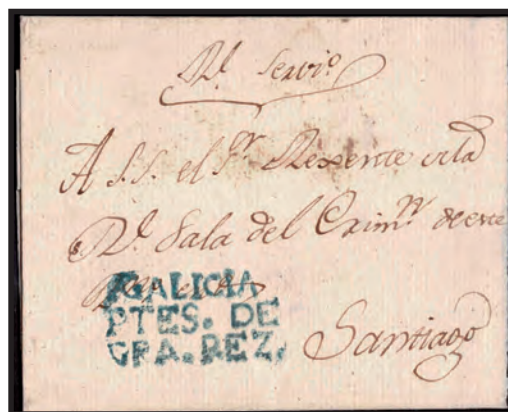 Rl. Servio.
A S.S. el Sr. Rexente de la
Rl. Sala del Crimn. de este
GALICIA
PTES. DE
GRA. REZ.
Santiago